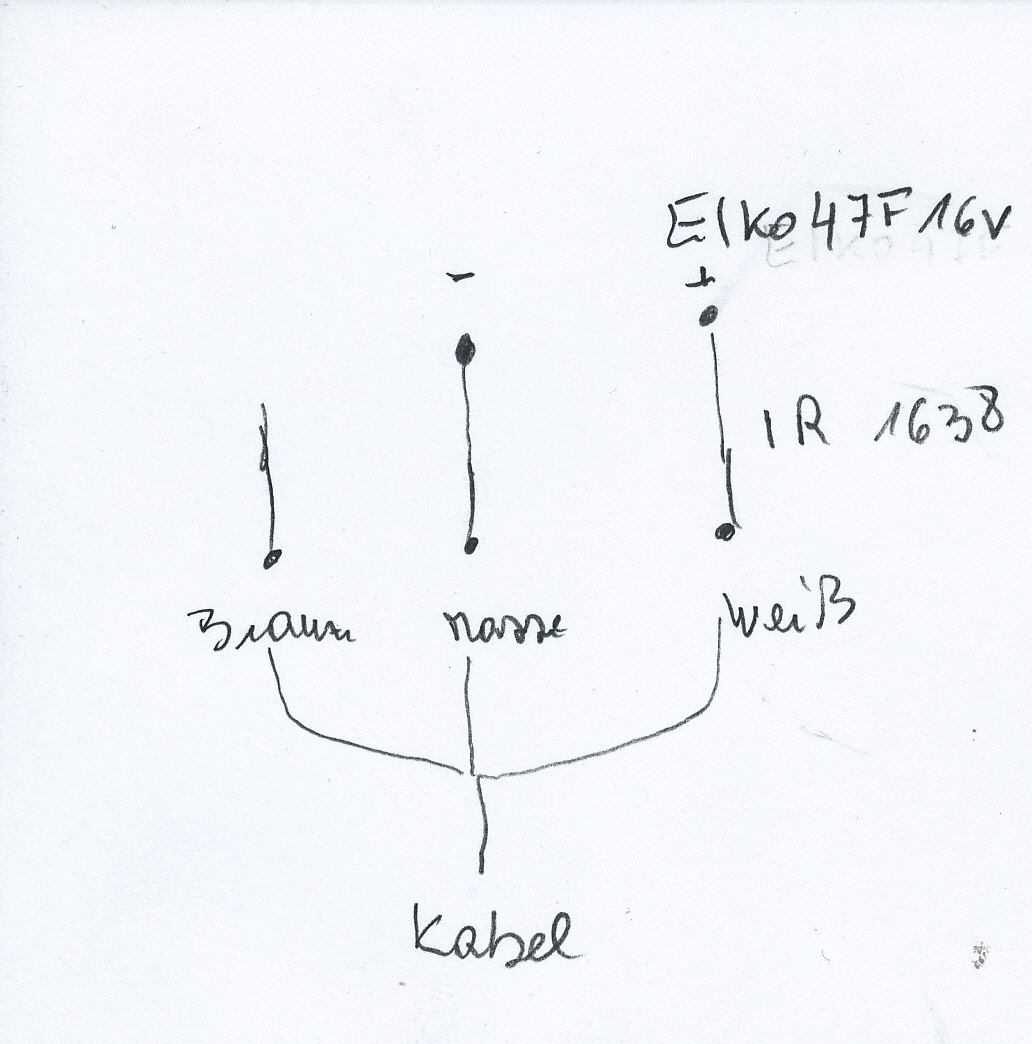 Elko 47F 16V
-
+
IR 1638
Braun Masse Weiß
Kabel